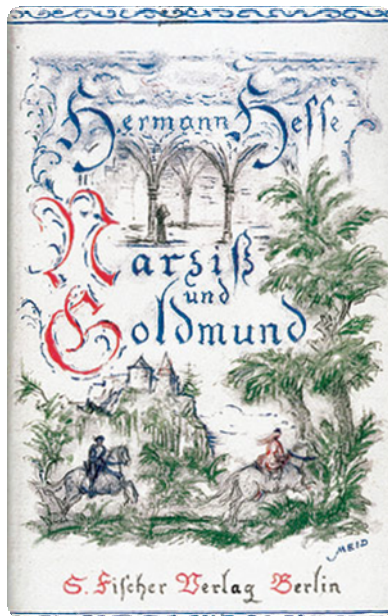 Hermann Hesse
Narziß
und
Goldmund
MEID
S. Fischer Verlag Berlin